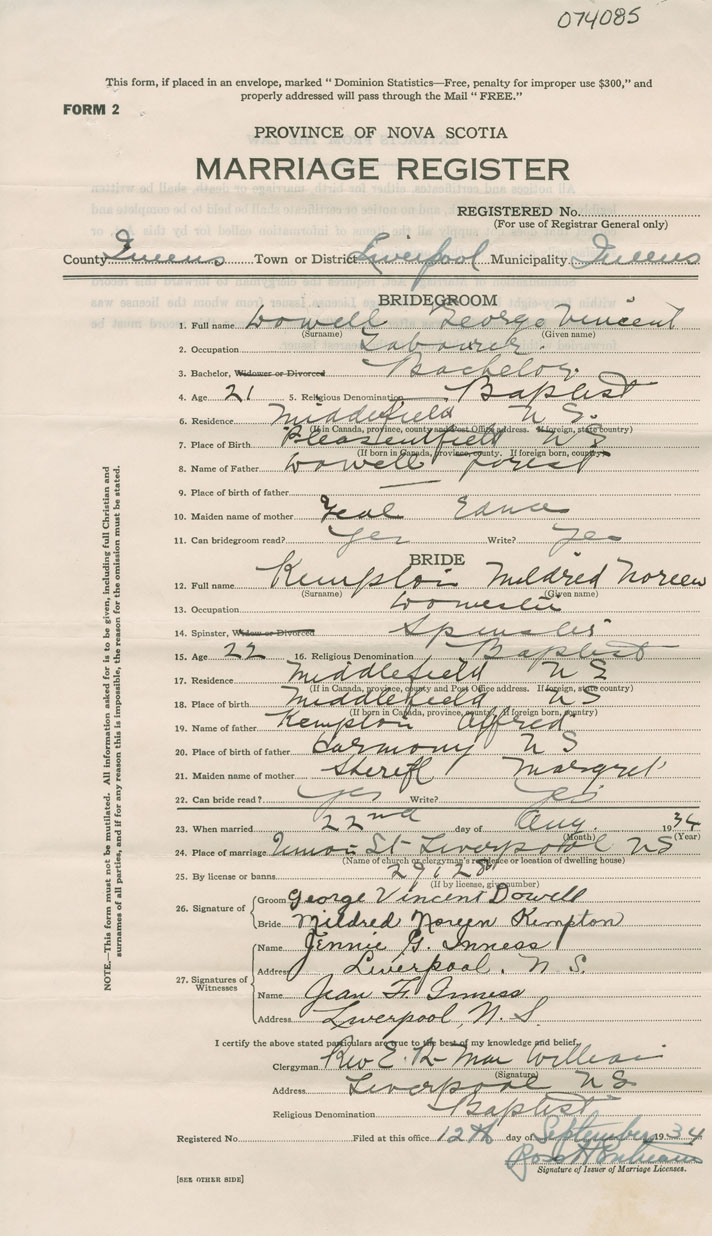 074085
This form, if placed in an envelope, marked " Dominion Statistics—Free, penalty for improper use $300," and
properly addressed will pass through the Mail " FREE."
FORM 2
PROVINCE OF NOVA SCOTIA
MARRIAGE REGISTER
REGISTERED No.
(For use of Registrar General only)
County Queens Town or District Liverpool Municipality Queens
BRIDEGROOM
1. Full name Dowell George Vincent
(Surname) (Given name)
2. Occupation Labourer.
3. Bachelor, Widower or Divorced Bachelor
4. Age 21 5. Religious Denomination Baptist
6. Residence Middlefield N S.
(If in Canada, province, county and Post Office address. If foreign, state country)
7. Place of Birth Pleasentfield N S
(If born in Canada, province, county. If foreign born, country)
8. Name of Father Dowell Forest
9. Place of birth of father —
10. Maiden name of mother
11. Can bridegroom read? Yes Write? Yes
BRIDE
12. Full name Kempton Mildred Noreen
(Surname) (Given name)
13. Occupation Domestic
14. Spinster, Widow or Divorced Spinster
15. Age 22 16. Religious Denomination Baptist
17. Residence Middlefield N S
(If in Canada, province, county and Post Office address. If foreign, state country)
18. Place of birth Middlefield N S
(If born in Canada, province, county. If foreign born, country)
19. Name of father Kempton Alfred
20. Place of birth of father Harmony N S
21. Maiden name of mother Margret
22. Can bride read? Yes Write? Yes
23. When married 22nd day of Aug. 1934
(Month) (Year)
24. Place of marriage Union St Liverpool NS
(Name of church or clergyman's residence or location of dwelling house)
25. By license or banns
(If by license, give number)
26. Signature of
Groom George Vincent Dowell
Bride Mildred Noreen Kempton
27. Signatures of Witnesses
Name Jennie G. Inness
Address Liverpool, N. S.
Name Jean F. Inness
Address Liverpool, N. S.
I certify the above stated particulars are true to the best of my knowledge and belief.
Clergyman Rev E. R. Mac William
(Signature)
Address Liverpool N S
Religious Denomination Baptist
Registered No. Filed at this office 12th day of September 1934
Signature of Issuer of Marriage Licenses.
[SEE OTHER SIDE]
NOTE.—This form must not be mutilated. All information asked for is to be given, including full Christian and
surnames of all parties, and if for any reason this is impossible, the reason for the omission must be stated.